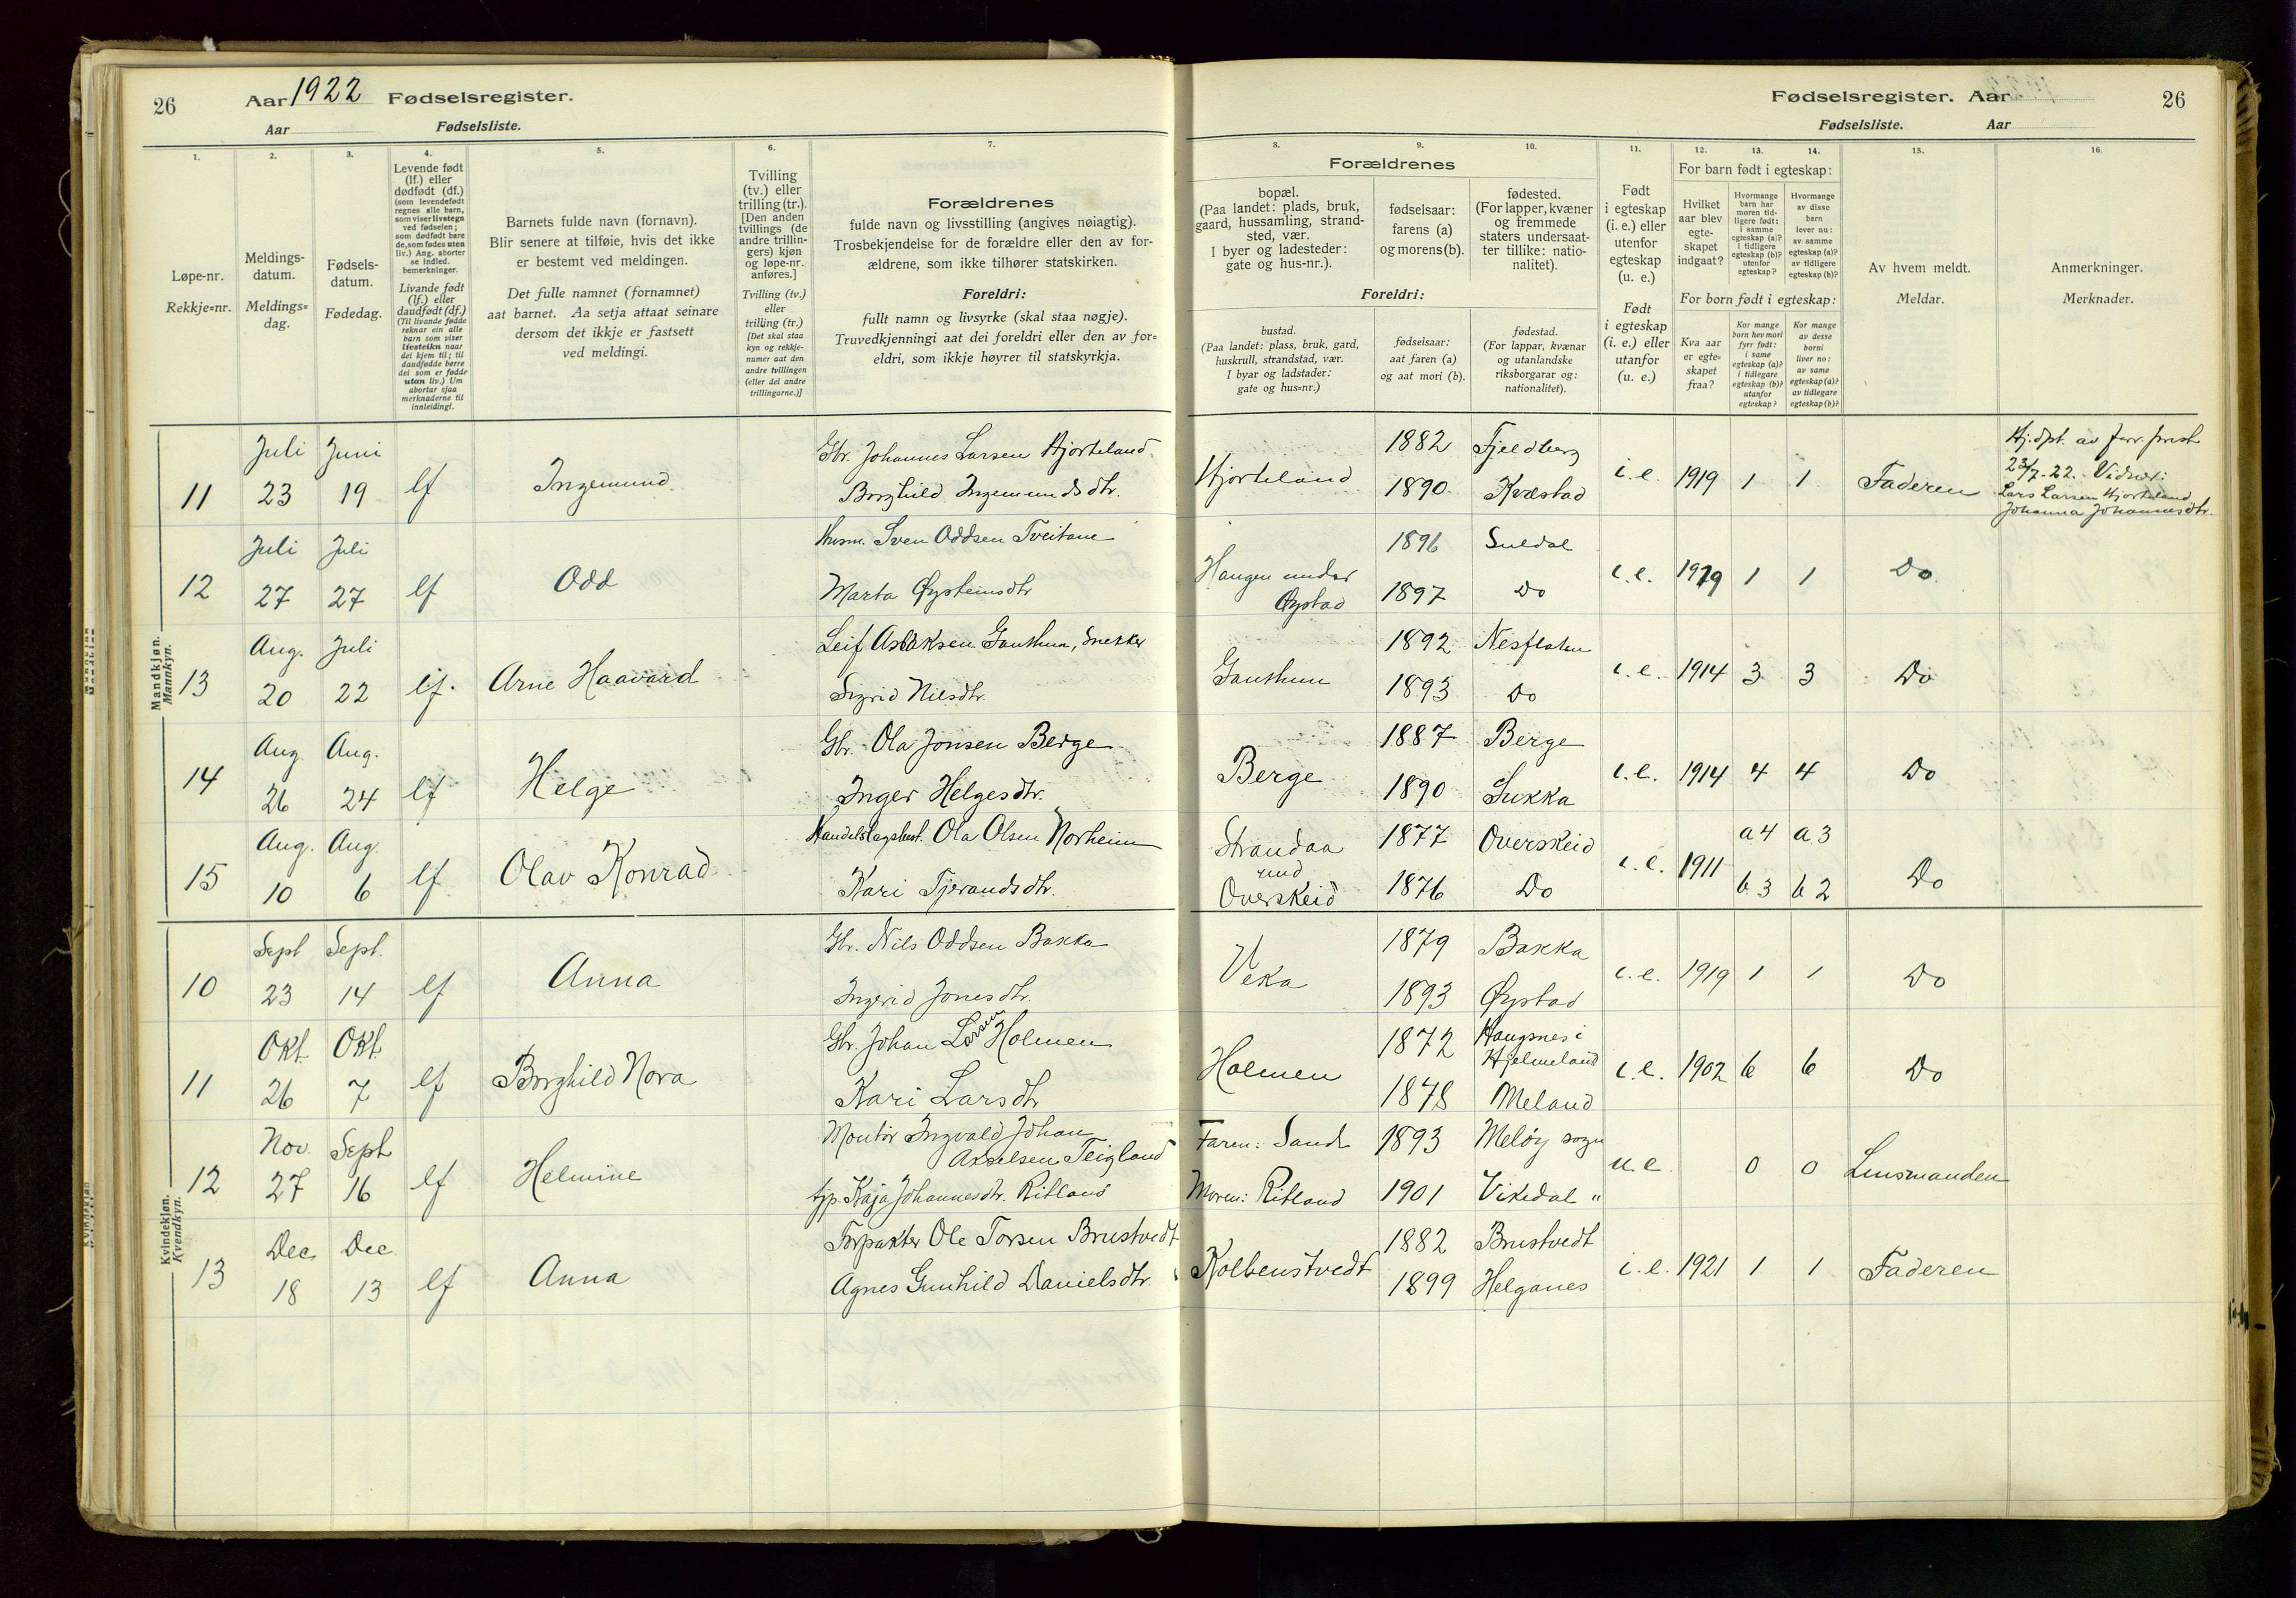 26 Aar 1922 Fødselsregister.
Aar Fødselsliste.
Fødselsregister. Aar 26
Fødselsliste. Aar
1. 2. 3. 4. 5. 6. 7. 8. 9. 10. 11. 12. 13. 14. 15. 16.
Løpe-nr.
Rekkje=nr.
Meldings-
datum.
Meldings=
dag.
Fødsels-
datum.
Fødedag.
Levende født
(lf.) eller
dødfødt (df.)
(som levendefødt
regnes alle barn,
som viser livstegn
ved fødselen;
som dødfødt bare
de, som fødes uten
liv.) Ang. aborter
se indled.
bemerkninger.
Livande født
(lf.) eller
daudfødt (df.)
(Til livande fødde
reknar ein alle
barn som viser
livsteikn naar
dei kjem til; til
daudfødde berre
dei som er fødde
utan liv.) Um
abortar sjaa
merknaderne til
innleidingi.
Barnets fulde navn (fornavn).
Blir senere at tilføie, hvis det ikke
er bestemt ved meldingen.
Det fulle namnet (fornamnet)
aat barnet. Aa setja attaat seinare
dersom det ikkje er fastsett
ved meldingi.
Tvilling
(tv.) eller
trilling (tr.).
[Den anden
tvillings (de
andre trillin-
gers) kjøn
og løpe-nr.
anføres.]
Tvilling (tv.)
eller
trilling (tr.)
[Det skal staa
kyn og rekkje-
numer aat den
andre tvillingen
(eller dei andre
trillingarne.)]
Forældrenes
fulde navn og livsstilling (angives nøiagtig).
Trosbekjendelse for de forældre eller den av for-
ældrene, som ikke tilhører statskirken.
Foreldri:
fullt namn og livsyrke (skal staa nøgje).
Truvedkjenningi aat dei foreldri eller den av for=
eldri, som ikkje høyrer til statskyrkja.
Forældrenes
bopæl.
(Paa landet: plads, bruk,
gaard, hussamling, strand-
sted, vær.
I byer og ladesteder:
gate og hus-nr.).
fødselsaar:
farens (a)
og morens (b).
fødested.
(For lapper, kvæner
og fremmede
staters undersaat-
ter tillike: natio-
nalitet).
Foreldri:
bustad.
(Paa landet: plass, bruk, gard,
huskrull, strandstad, vær.
I byar og ladstader:
gate og hus=nr.)
fødselsaar:
aat faren (a)
og aat mori (b).
fødestad.
(For lappar, kvænar
og utanlandske
riksborgarar og:
nationalitet).
Født
i egteskap
(i. e.) eller
utenfor
egteskap
(u. e.)
Født
i egteskap
(i. e.) eller
utanfor
(u. e.)
For barn født i egteskap:
Hvilket
aar blev
egte-
skapet
indgaat?
Hvormange
barn har
moren tid-
ligere født:
i samme
egteskap (a)?
i tidligere
egteskap (b)?
utenfor
egteskap?
Hvormange
av disse
barn
lever nu:
av samme
egteskap (a)?
av tidligere
egteskap (b)?
For born født i egteskap:
Kva aar
er egte=
skapet
fraa?
Kor mange
born hev mori
fyrr født:
i same
egteskap (a)?
i tidlegare
egteskap (b)?
utanfor
egteskap?
Kor mange
av desse
borni
liver no:
av same
egteskap (a)?
av tidlegare
egteskap (b)?
Av hvem meldt.
Meldar.
Anmerkninger.
Merknader.
Mandkjøn.
Mannkyn.
Juli Juni Gbr. Johannes Larsen Hjorteland 1882 Fjeldberg Hj.dpt. av
11 23 19 lf Ingemund Borghild Ingemundsdtr. Hjorteland 1890 Kvæstad i.e. 1919 1 1 Faderen
23/7-22. Vidner:
Lars Larsen Hjorteland
Johanna Johannesdtr.
Juli Juli Husm. Sven Oddsen Tveitane 1896 Suldal
12 27 27 lf Odd Marta Øysteinsdtr Haugen under Øystad 1897 Do i.e. 1919 1 1 Do.
Aug. Juli Leif Aslaksen Ganthun, Snekker 1892 Nesflaten
13 20 22 lf. Arne Haavard Sigrid Nilsdtr. Ganthun 1893 Do i.e. 1914 3 3 Do
Aug. Aug. Gbr. Ola Jonsen Berge 1887 Berge
14 26 24 lf Helge Inger Helgesdtr. Berge 1890 Sukka i.e. 1914 4 4 Do
Aug. Aug. Handelslagsbest. Ola Olsen Norheim Strandaa 1877 Overskeid a 4 a 3
15 10 6 lf Olav Konrad Kari Tjerandsdtr. und Overskeid 1876 Do i.e. 1911 b 3 b 2 Do
Kvindekjøn.
Kvendkyn.
Sept Sept. Gbr. Nils Oddsen Bakka 1879 Bakka
10 23 14 lf Anna Ingerid Jonesdtr. Veka 1893 Øystad i.e. 1919 1 1 Do
Okt. Okt. Gbr. Johan Larsen Holmen 1872 Haugsnes i Hjelmeland
11 26 7 lf Borghild Nora Kari Larsdtr Holmen 1878 Meland i.e. 1902 6 6 Do
Nov. Sept Montør Ingvald Johan Akselsen Teigland Faren: Sand 1893 Meløy sogn
12 27 16 lf Helmine tjp. Kaja Johannesdtr. Ritland Moren: Ritland 1901 Vikedal " u.e. 0 0 Lensmanden
Dec. Dec. Forpakter Ole Torsen Brustvedt 1882 Brustvedt
13 18 13 lf Anna Agnes Gunhild Danielsdtr. Kolbenstvedt 1899 Helganes i.e. 1921 1 1 Faderen